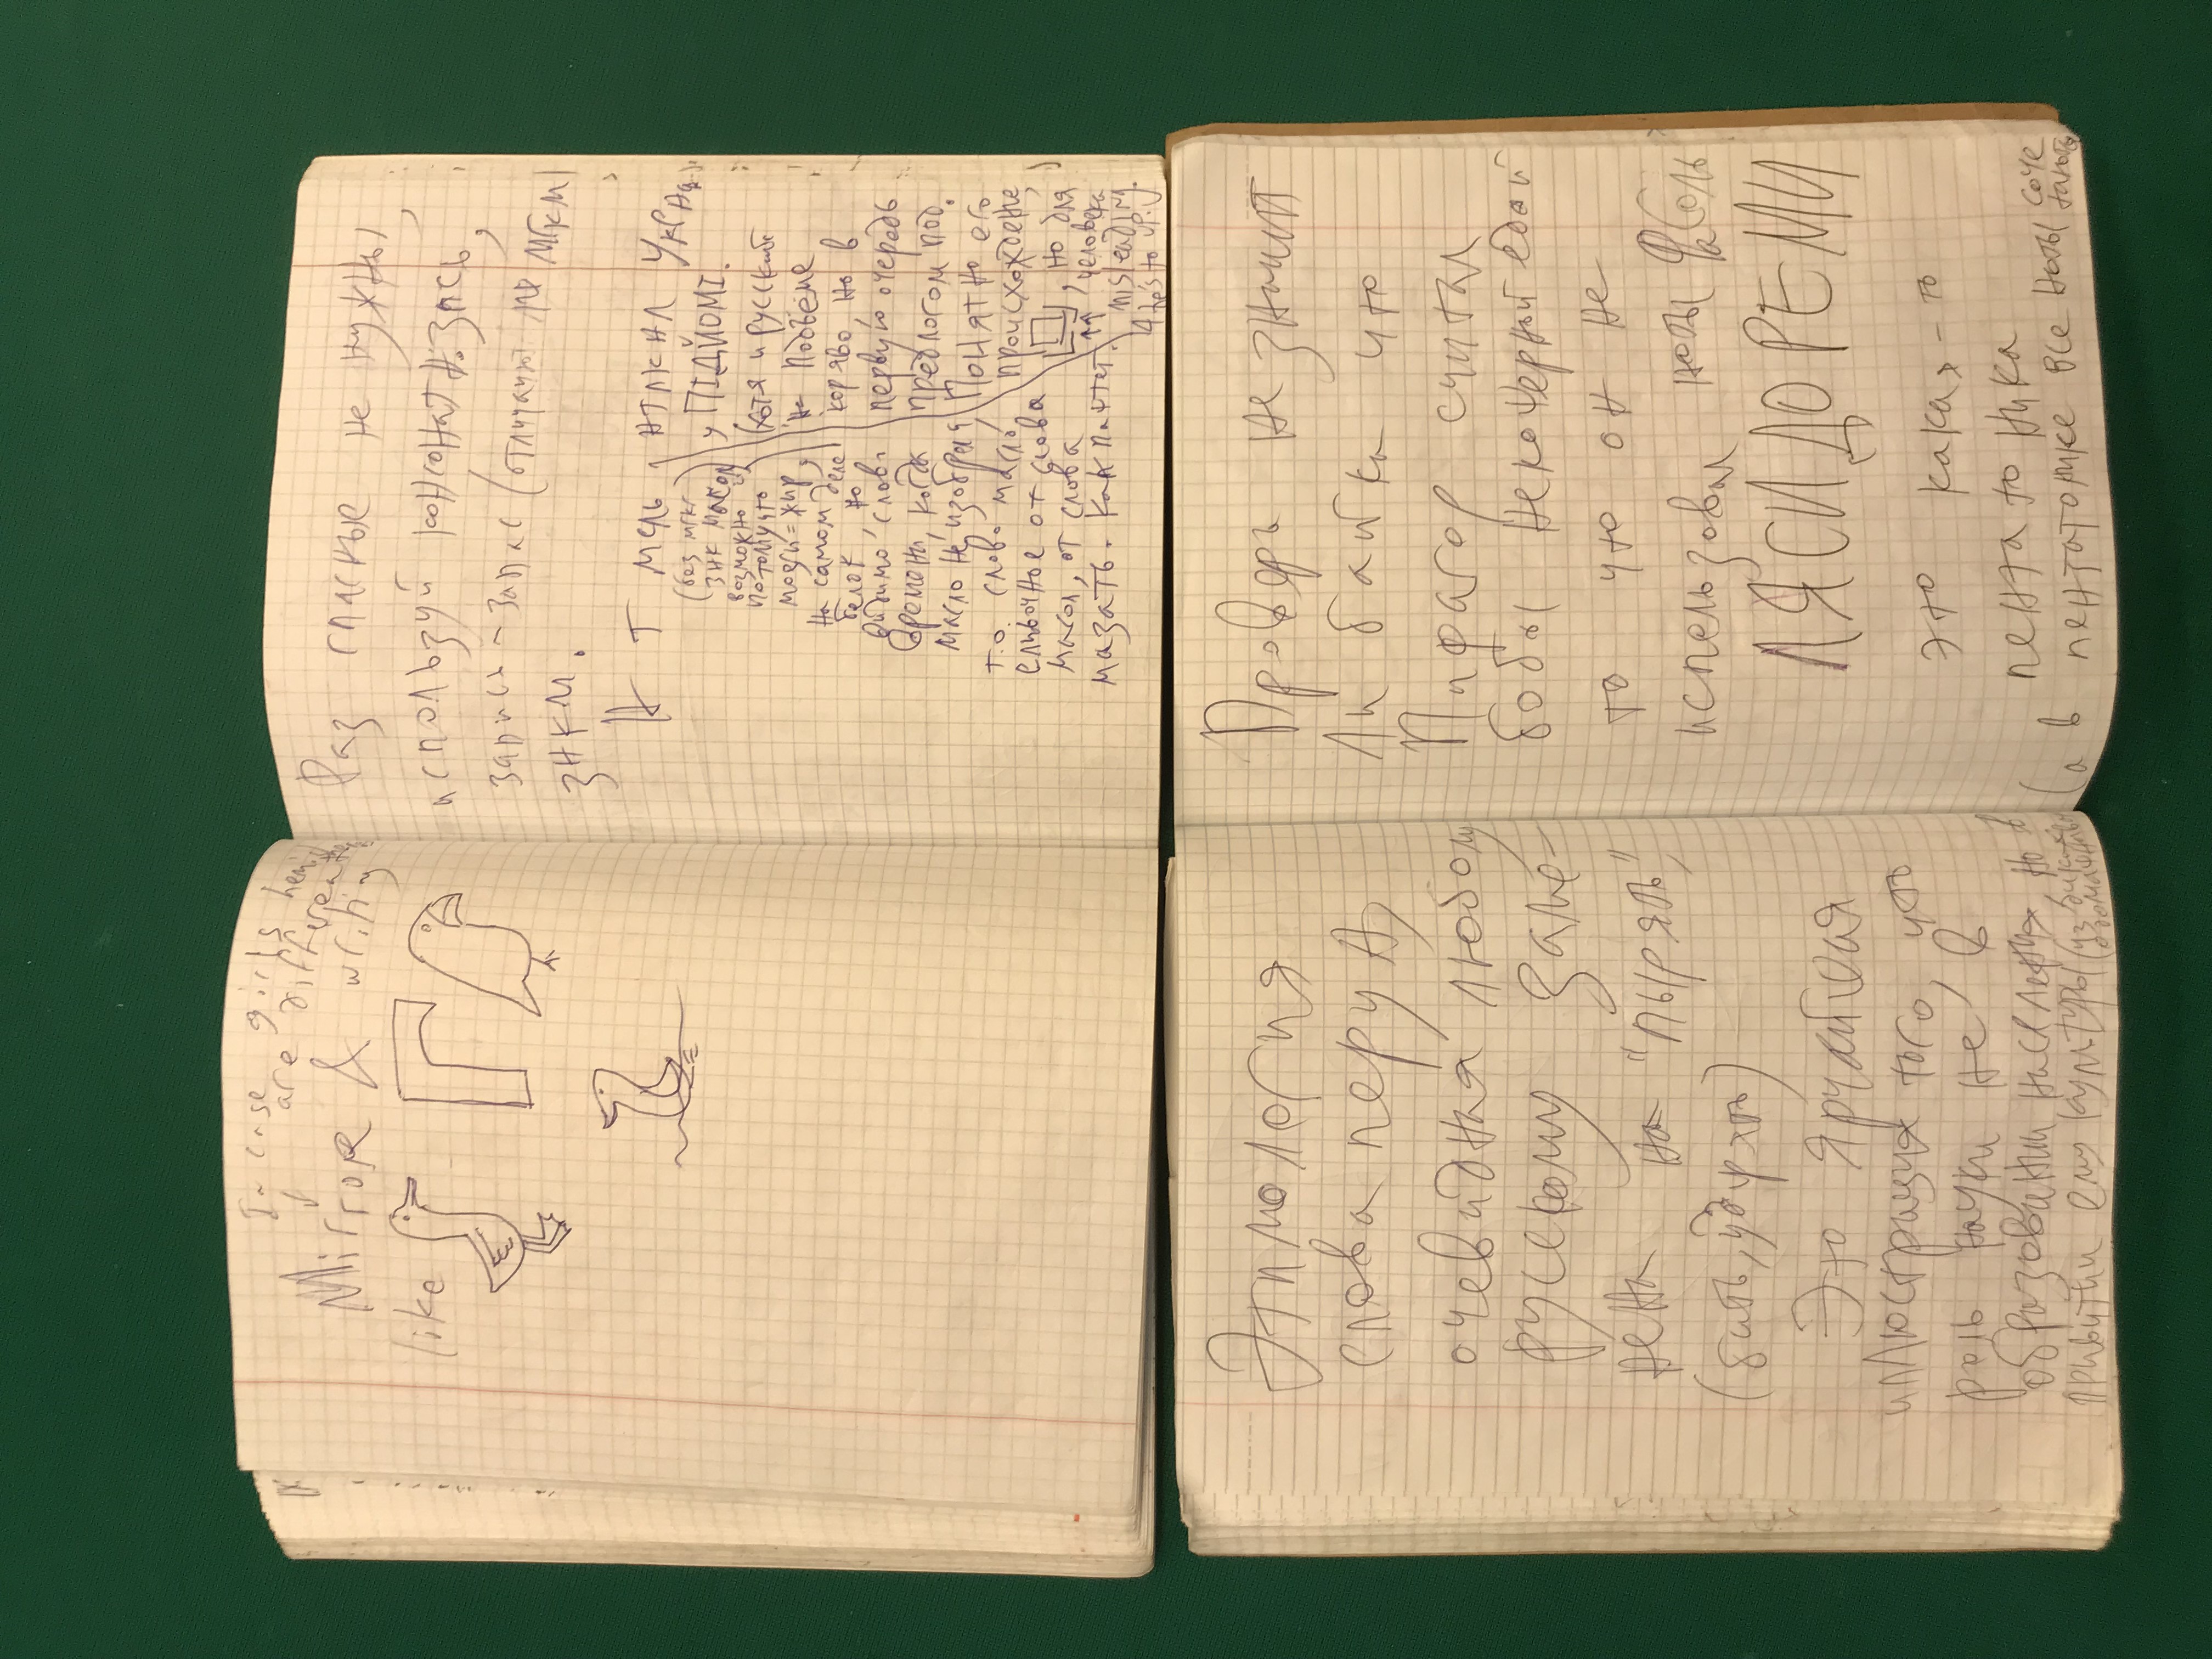 In case girls
are different
Mirrore & writing
like
Г
Раз гласные не нужны,
используй консонатн. зпсь,
запись – запас (отличают мгкм
знкм.
Н т мель
(без мгкг
знк
возможно
потому что
мозги = жир,
на самом деле
белок, но
видимо слово
времени, когда
масло не изобрели,
т.о. слово масло
сливочное от слова
от слова
мазать. как паштет.
нтлкнл
у ПІДЙОМІ.
(хотя и русский
на подъёме
коряво, но в
первую очередь
предлогом под.
Понятно его
происхождение,
, но для
↑↑ человека
misleading.
he's to up.
Этимология
слова перун,
очевидная любому
русскому заме-
нена на "пырять",
(бить, ударять)
Это ярчайшая
иллюстрация того, что
роль науки не в
образовании населения, но в
привитии ему культуры (из
Проверь не значит
ли байка что
Пифагор считал
бобы некошерной едой
то что он не
использовал ноты Фа Соль
ЛЯ СИ ДО РЕ МИ
это какая-то
пентатоника
(а в пентатонике все ноты соче
таются